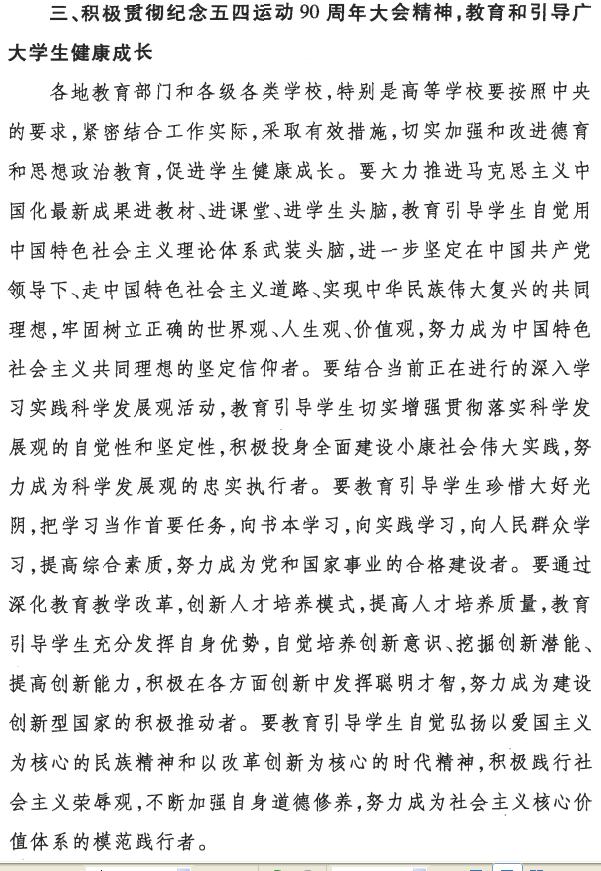 三、积极贯彻纪念五四运动90周年大会精神,教育和引导广
大学生健康成长
各地教育部门和各级各类学校,特别是高等学校要按照中央
的要求,紧密结合工作实际,采取有效措施,切实加强和改进德育
和思想政治教育,促进学生健康成长。要大力推进马克思主义中
国化最新成果进教材、进课堂、进学生头脑,教育引导学生自觉用
中国特色社会主义理论体系武装头脑,进一步坚定在中国共产党
领导下、走中国特色社会主义道路、实现中华民族伟大复兴的共同
理想,牢固树立正确的世界观、人生观、价值观,努力成为中国特色
社会主义共同理想的坚定信仰者。要结合当前正在进行的深入学
习实践科学发展观活动,教育引导学生切实增强贯彻落实科学发
展观的自觉性和坚定性,积极投身全面建设小康社会伟大实践,努
力成为科学发展观的忠实执行者。要教育引导学生珍惜大好光
阴,把学习当作首要任务,向书本学习,向实践学习,向人民群众学
习,提高综合素质,努力成为党和国家事业的合格建设者。要通过
深化教育教学改革,创新人才培养模式,提高人才培养质量,教育
引导学生充分发挥自身优势,自觉培养创新意识、挖掘创新潜能、
提高创新能力,积极在各方面创新中发挥聪明才智,努力成为建设
创新型国家的积极推动者。要教育引导学生自觉弘扬以爱国主义
为核心的民族精神和以改革创新为核心的时代精神,积极践行社
会主义荣辱观,不断加强自身道德修养,努力成为社会主义核心价
值体系的模范践行者。